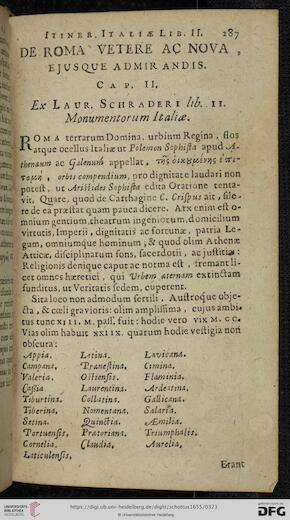 ITINER. ITALIÆ LIB. II. 287
DE ROMA VETERE AC NOVA,
EJUSQUE ADMIRANDIS.
CAP. II.
Ex LAUR. SCHRADERI lib. II.
Monumentorum Italiæ.
ROMA terrarum Domina, urbium Regina, flos
atque ocellus Italiæ ut Polemon Sophista apud A-
thenæum ac Galenum appellat, τῆς οἰκουμένης ἐπι-
τομή, orbis compendium, pro dignitate laudari non
potest, ut Aristides Sophista edita Oratione tenta-
vit. Quare, quod de Carthagine C. Crispus ait, sile-
re de ea præstat quam pauca dicere. Arx enim est o-
mnium gentium, theatrum ingeniorum, domicilium
virtutis, Imperii, dignitatis ac fortunæ, patria Le-
gum, omniumque hominum, & quod olim Athenæ
Atticæ, disciplinarum fons, sacerdotii, ac justitiæ:
Religionis denique caput ac norma est, fremant li-
cet omnes hæretici, qui Urbem æternam extinctam
funditus, ut Veritatis sedem, cuperent.
Sita loco non admodum fertili, Austroque obje-
cta, & cœli gravioris: olim amplissima, cujus ambi-
tus tunc XIII. M. pass. fuit: hodie vero VIX M. CC.
Vias olim habuit XXIX. quarum hodie vestigia non
obscura:
Appia. Latina. Lavicana.
Campana. Prænestina. Cimina.
Valeria. Ostiensis. Flaminia.
Cassia. Laurentina. Ardeatina.
Tiburtina. Collatina. Gallicana.
Tiberina. Nomentana. Salaria.
Setina. Quinctia. Æmilia.
Portuensis. Prætoriana. Triumphalis.
Cornelia. Claudia. Aurelia.
Laticulensis.
Erant
UNIVERSITÄTS-
BIBLIOTHEK
HEIDELBERG
https://digi.ub.uni-heidelberg.de/diglit/schottus1655/0323
© Universitätsbibliothek Heidelberg
gefördert durch die
DFG